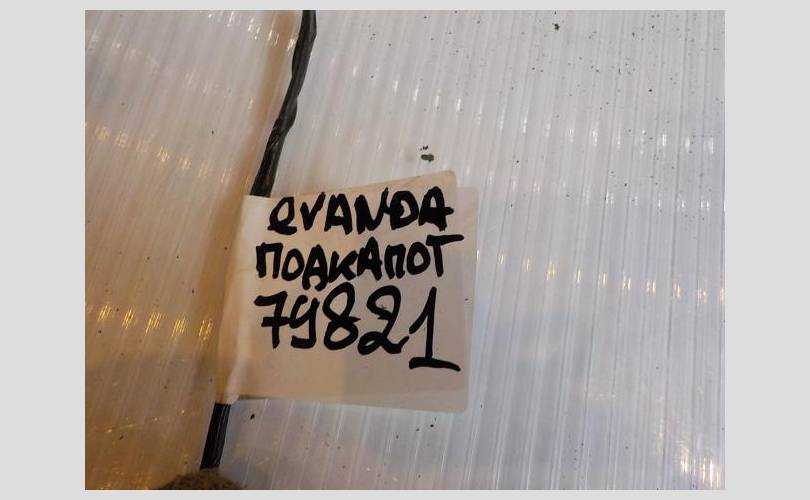 EVANDA
ПОДКАПОТ
79821